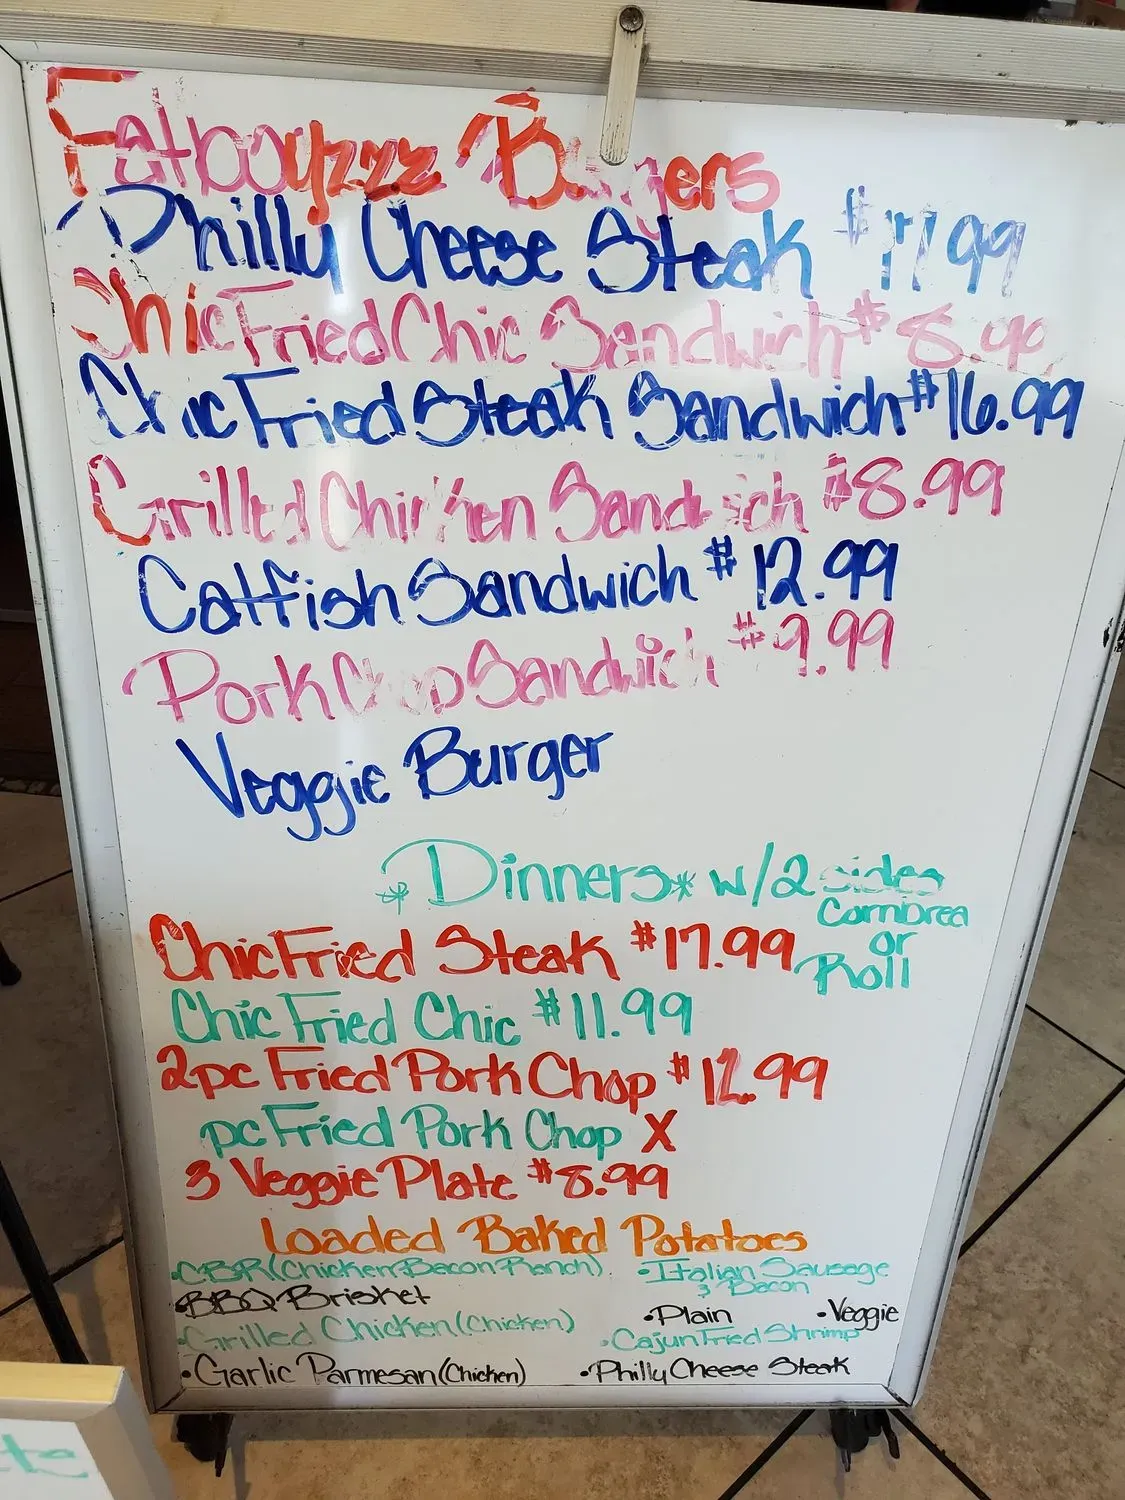 Fatboyzzz Burgers
Philly Cheese Steak $11.99
Chic Fried Chic Sandwich $8.99
Chic Fried Steak Sandwich $16.99
Grilled Chicken Sandwich $8.99
Catfish Sandwich $12.99
Pork Chop Sandwich $9.99
Veggie Burger
*Dinners* w/2 sides
Cornbrea
or
Roll
Chic Fried Steak $17.99
Chic Fried Chic $11.99
2pc Fried Pork Chop $12.99
pc Fried Pork Chop X
3 Veggie Plate $8.99
Loaded Baked Potatoes
•CBR (Chicken Bacon Ranch)
•BBQ Brisket
•Grilled Chicken (Chicken)
•Garlic Parmesan (Chicken)
•Italian Sausage
& Bacon
•Plain •Veggie
•Cajun Fried Shrimp
•Philly Cheese Steak